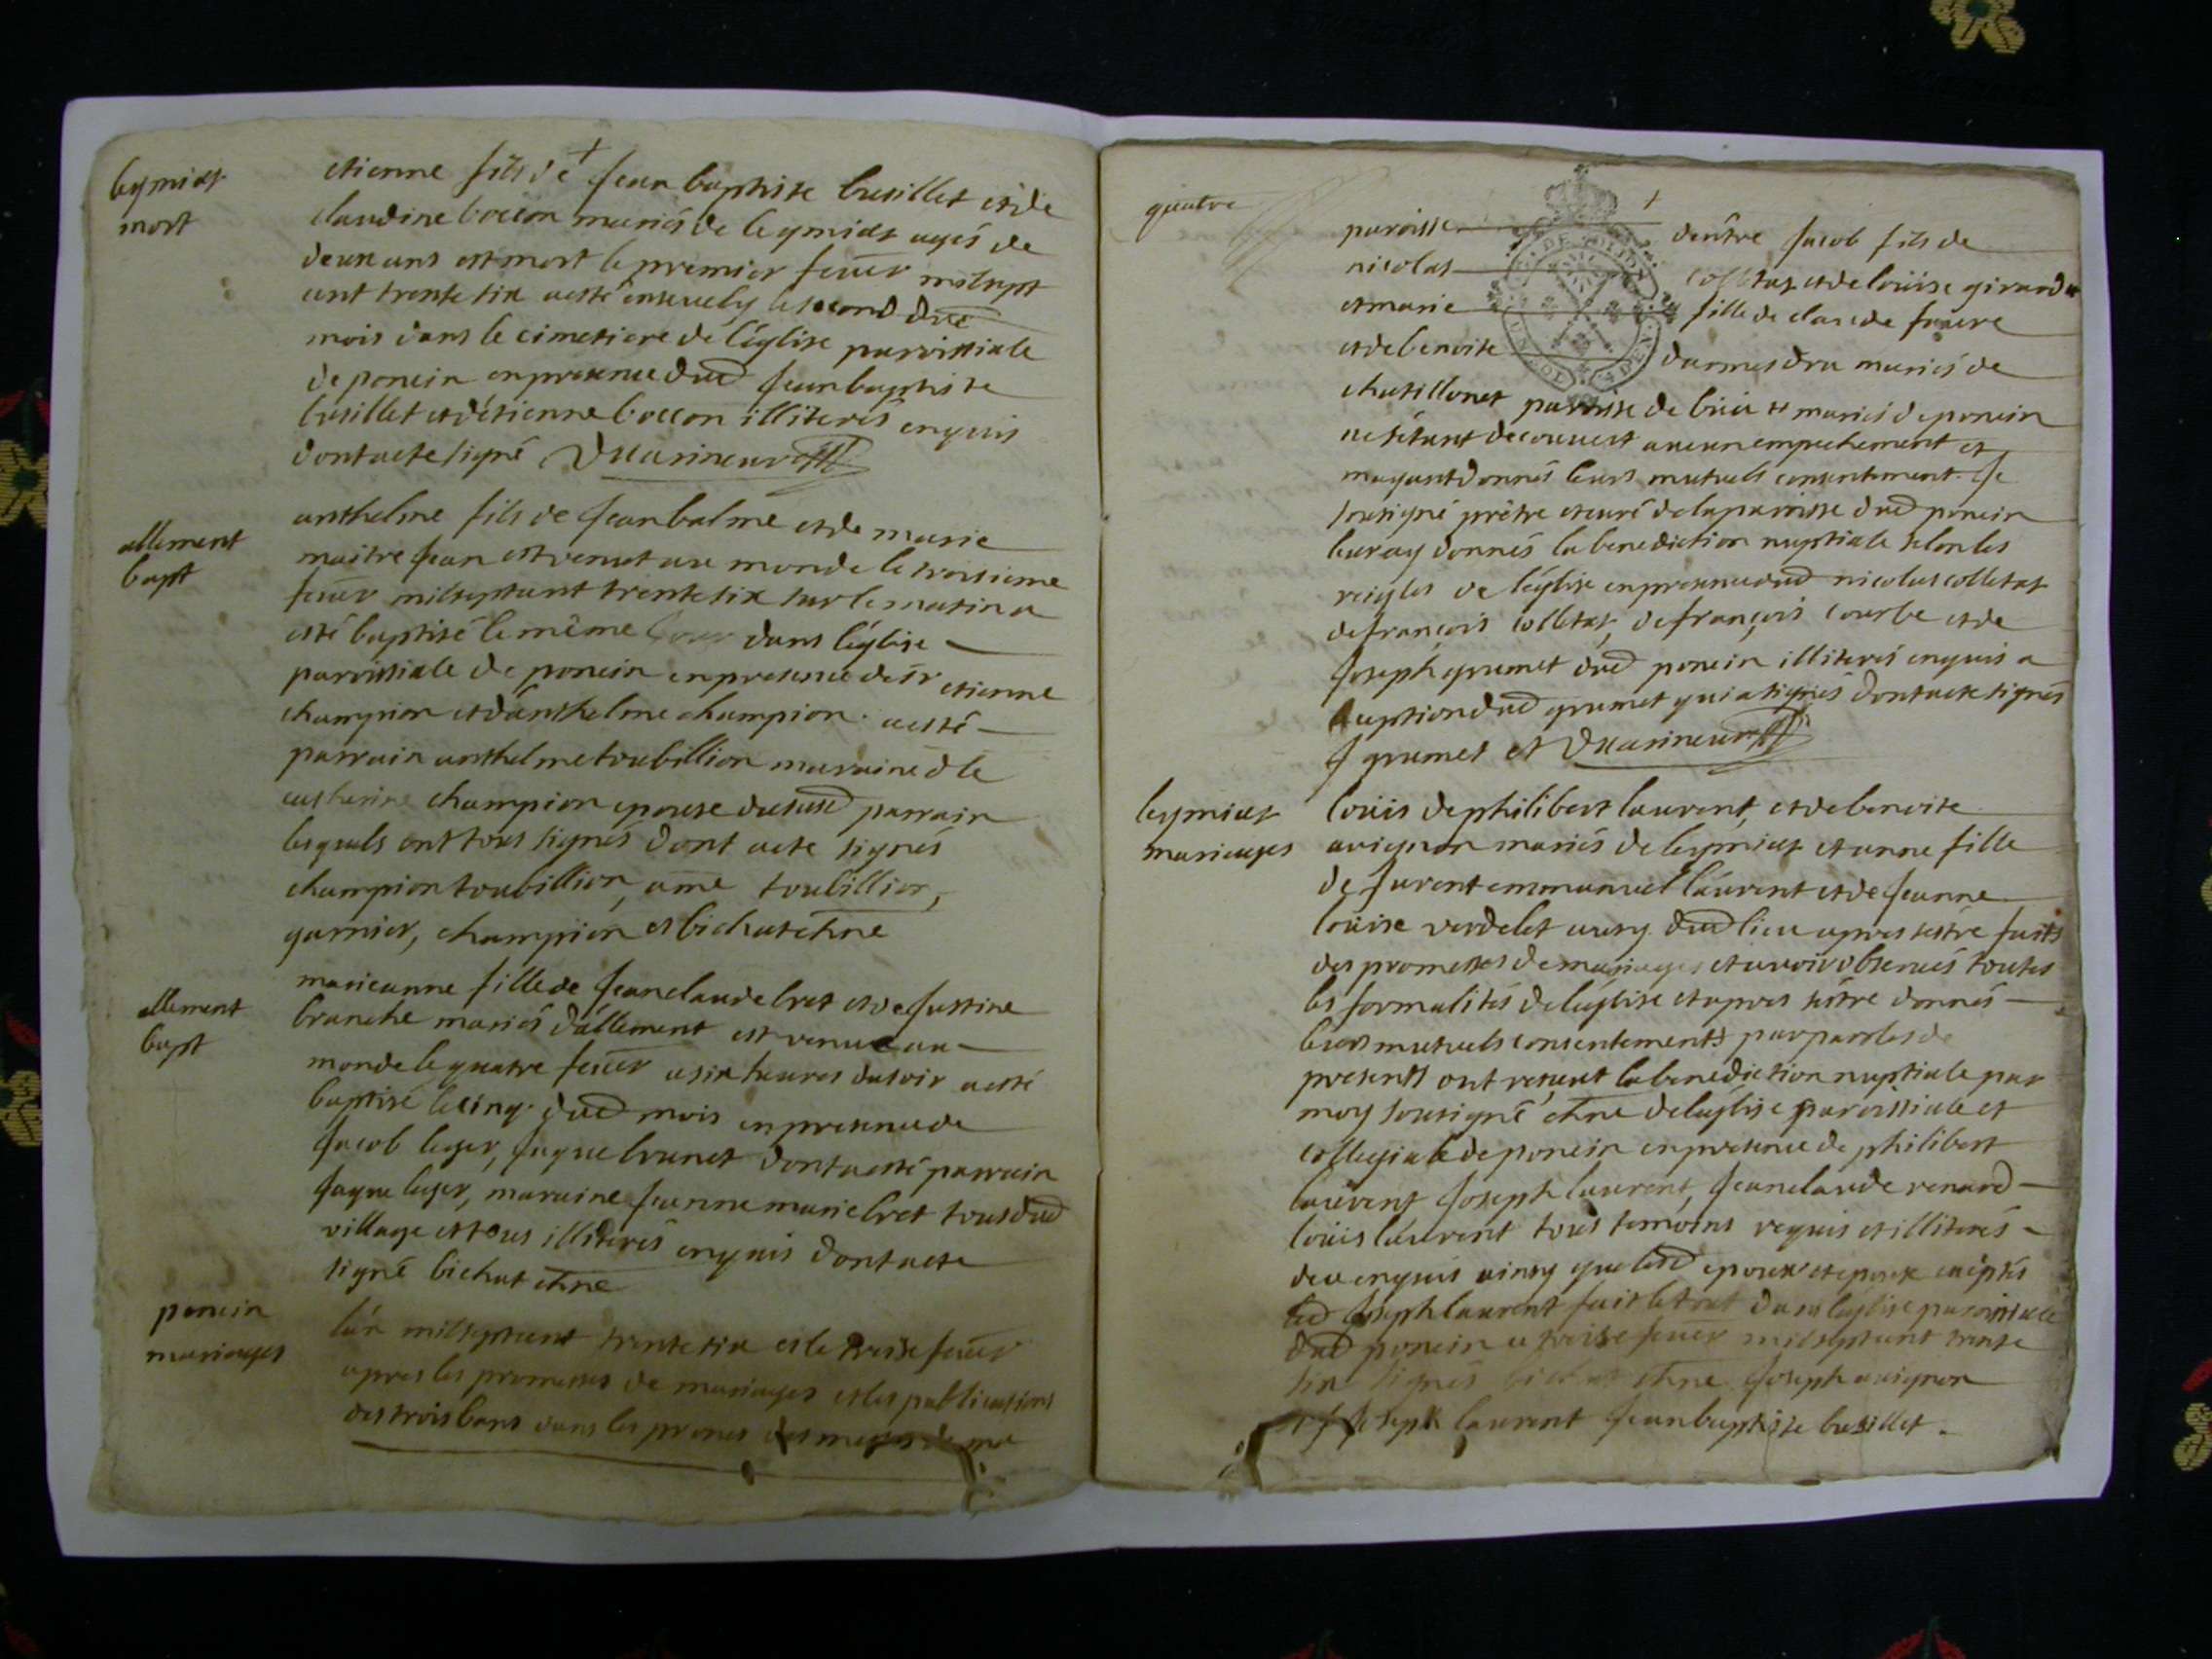 leymiat
mort
etienne fils de Jean baptiste busillet et de
claudine boccon mariés de leymiat agés de
deux ans est mort le premier fevr milsept
cent trente six a esté ensevely le second dud
mois dans le cimetiere de l'église paroissiale
de poncin en presence dud Jean baptiste
busillet et d'etienne boccon illiterés enquis
dont acte signé Duarineur
allement
bapt
anthelme fils de Jean balme et de marie
maitre Jean est venut au monde le troisieme
fevr milseptcent trente six sur le matin a
esté baptisé le même jour dans léglise
paroissiale de poncin en presence de sr etienne
champion et d'anthelme champion a esté
parrain anthelme toubillion maraine dle
catherine champion epouse du susd parrain
lesquels ont tous signés dont acte signés
champion toubillion, ame toubillion,
garnier, champion et bichat chne
allement
bapt
marieanne fille de Jean claude bret et de Justine
branche mariés d'allement est venue au
monde le quatre fevr a six heures du soir a esté
baptisé le cinq dud mois en presence de
Jacob leger, Jaque brunet dont a esté parrain
Jaque leger, maraine Jeanne marie bret tous dud
village et tous illiterés enquis dont acte
signé bichat chne
poncin
mariages
l'an milseptcent trente six et le treise fevr
apres les promesses de mariages et les publications
des trois bans dans les prones des messes de ma
quatre
paroisse dentre Jacob fils de
nicolas colletaz et de loüise girard
et marie fille de claude favre
et de benoite darmedru mariés de
chatillonet paroisse de briɛ et mariés de poncin
ne sétant decouvert aucun empechement et
mayant donnés leurs mutuels consentement Je
sousigné prêtre et curé de la paroisse dud poncin
leur ay donnés la benediction nuptiale selon les
reigles de léglise en presence dud nicolas colletaz
de françois colletaz, de françois courbe et de
Joseph grumet dud poncin illiterés enquis a
exuption dud grumet qui a signés dont acte signés
J grumet et Duarineur
leymiat
mariages
loüis de philibert laurent, et de benoite
avignon mariés de leymiat et anne fille
de furent emmanuel laurent et de Jeanne
loüise verdelet aussy dud lieu apres sestre faits
des promesses de mariages et avoir observés toutes
les formalités de léglise et apres sêtre donnés
leurs mutuels consentements par paroles de
presents ont reçeut la benediction nuptiale par
moy sousigné chne de léglise paroissiale et
collegiale de poncin en presence de philibert
laurent Joseph laurent, Jean claude renard
loüis laurent tous temoins requis et illiterés
de ce enquis ainsy que lesd epoux et epouse exeptés
led Joseph laurent fait le tout dans leglise paroissiale
dud poncin a treise fevr milseptcent trente
six signés bichat chne Joseph avignon
et Joseph laurent Jean baptiste busillet.